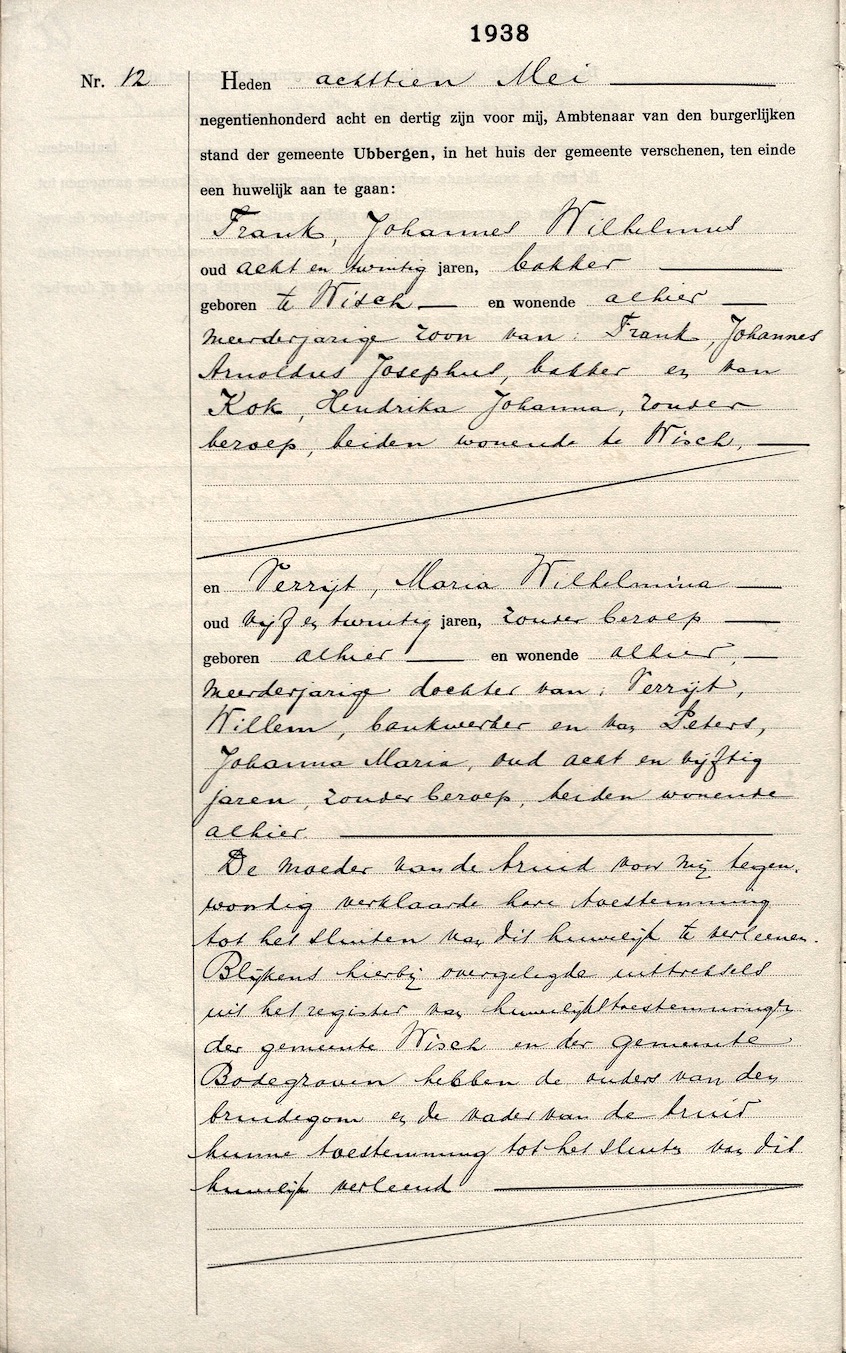 1938
Nr. 12 Heden achttien Mei
negentienhonderd acht en dertig zijn voor mij, Ambtenaar van den burgerlijken
stand der gemeente Ubbergen, in het huis der gemeente verschenen, ten einde
een huwelijk aan te gaan:
Frank, Johannes Wilhelmus
oud acht en twintig jaren, bakker
geboren te Wisch en wonende alhier
meerderjarige zoon van: Frank, Johannes
Arnoldus Josephus, bakker en van
Kok, Hendrika Johanna, zonder
beroep, beiden wonende te Wisch,
en Verrijt, Maria Wilhelmina
oud vijf en twintig jaren, zonder beroep
geboren alhier en wonende alhier,
meerderjarige dochter van: Verrijt,
Willem, bankwerker en van Peters,
Johanna Maria, oud acht en vijftig
jaren, zonder beroep, beiden wonende
alhier.
De moeder van de bruid voor mij tegen-
woordig verklaarde hare toestemming
tot het sluiten van dit huwelijk te verleenen.
Blijkens hierbij overgelegde uittreksels
uit het register van huwelijkstoestemmingen
der gemeente Wisch en der gemeente
Bodegraven hebben de ouders van den
bruidegom en de vader van de bruid
hunne toestemming tot het sluiten van dit
huwelijk verleend